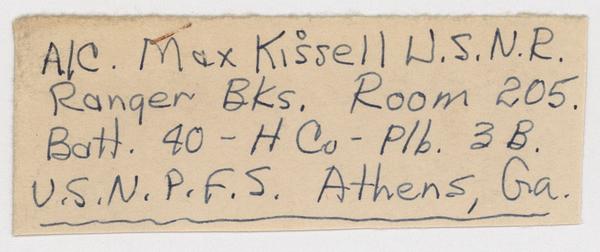 A/C. Max Kissell U.S.N.R.
Ranger Bks. Room 205.
Batt. 40 - H Co - Plb. 3 B.
U.S.N.P.F.S. Athens, Ga.